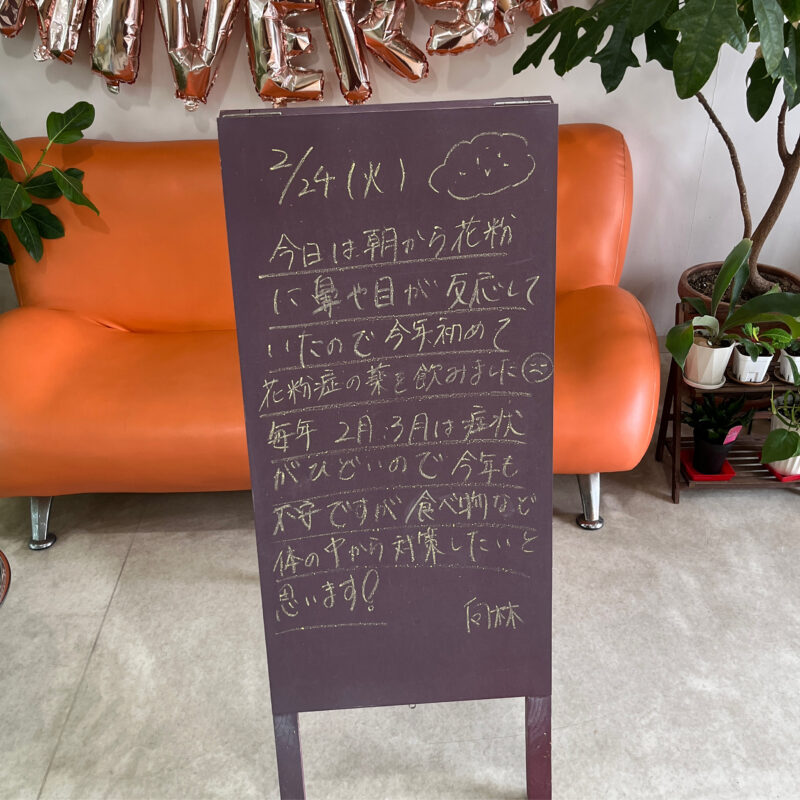 NIVERS
2/24(火)
今日は朝から花粉
に鼻や目が反応して
いたので今年初めて
花粉症の薬を飲みました
毎年 2月.3月は症状
がひどいので今年も
不安ですが食べ物など
体の中から対策したいと
思います!
向林